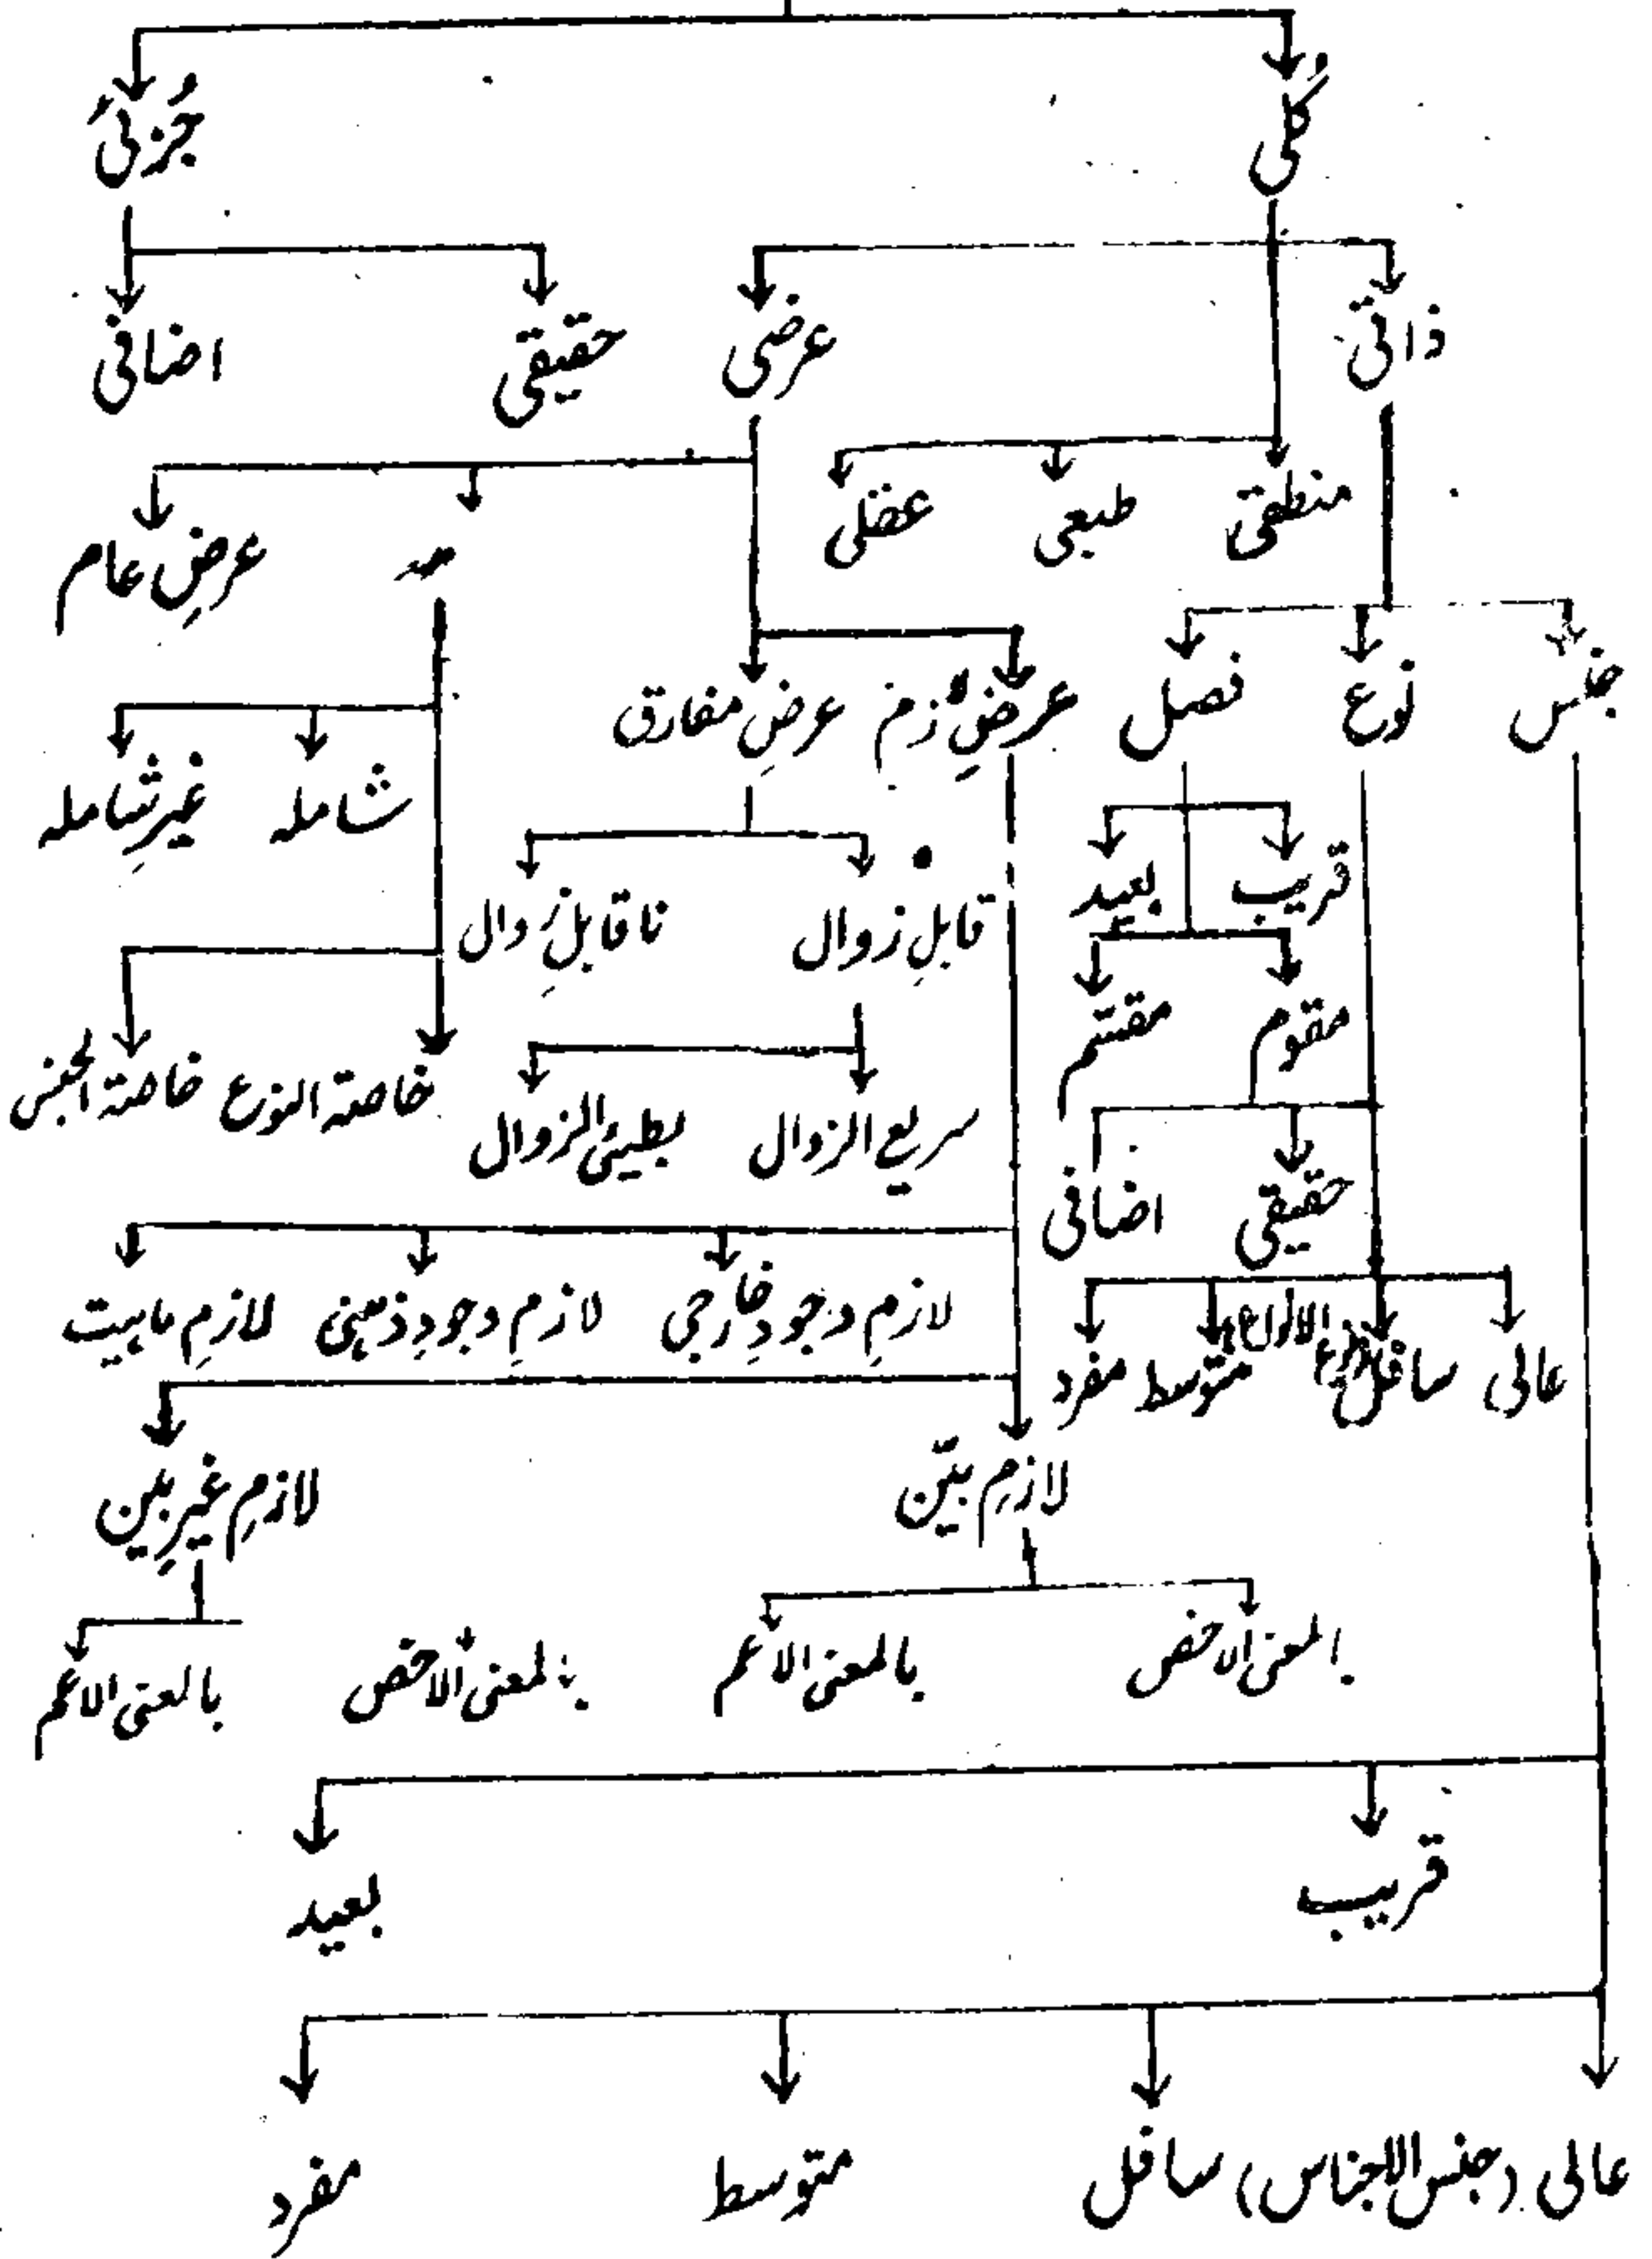 کُلی جُزئی
ذاتی عرضی حقیقی اضافی
منطقی طبعی عقلی
عرضِ عام
جنس نوع فصل عرضِ لازم عرضِ مفارق
شاملہ غیرِ شاملہ
قریب بعید
قابلِ زوال ناقابلِ زوال
مقوم مقسّم
خاصۃ النوع خاصۃ الجنس
سریع الزوال بطیئ الزوال
حقیقی اضافی
لازمِ وجودِ خارجی لازمِ وجودِ ذہنی لازمِ ماہیت
عالی سافل (نوع الانواع) متوسط مفرد
لازمِ بیّن لازمِ غیرِ بین
بالمعنی الاخص بالمعنی الاعم بالمعنی الاخص بالمعنی الاعم
قریب بعید
عالی (جنس الاجناس) سافل متوسط مفرد